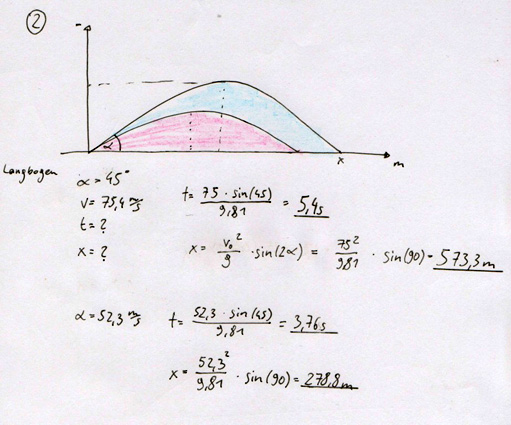 2
α
x
m
Langbogen
α = 45°
v = 75,4 m/s
t = ?
x = ?
t = 75 · sin(45) / 9,81 = 5,4s
x = v₀² / g · sin(2α) = 75² / 9,81 · sin(90) = 573,3 m
α = 52,3 m/s
t = 52,3 · sin(45) / 9,81 = 3,76s
x = 52,3² / 9,81 · sin(90) = 278,8m